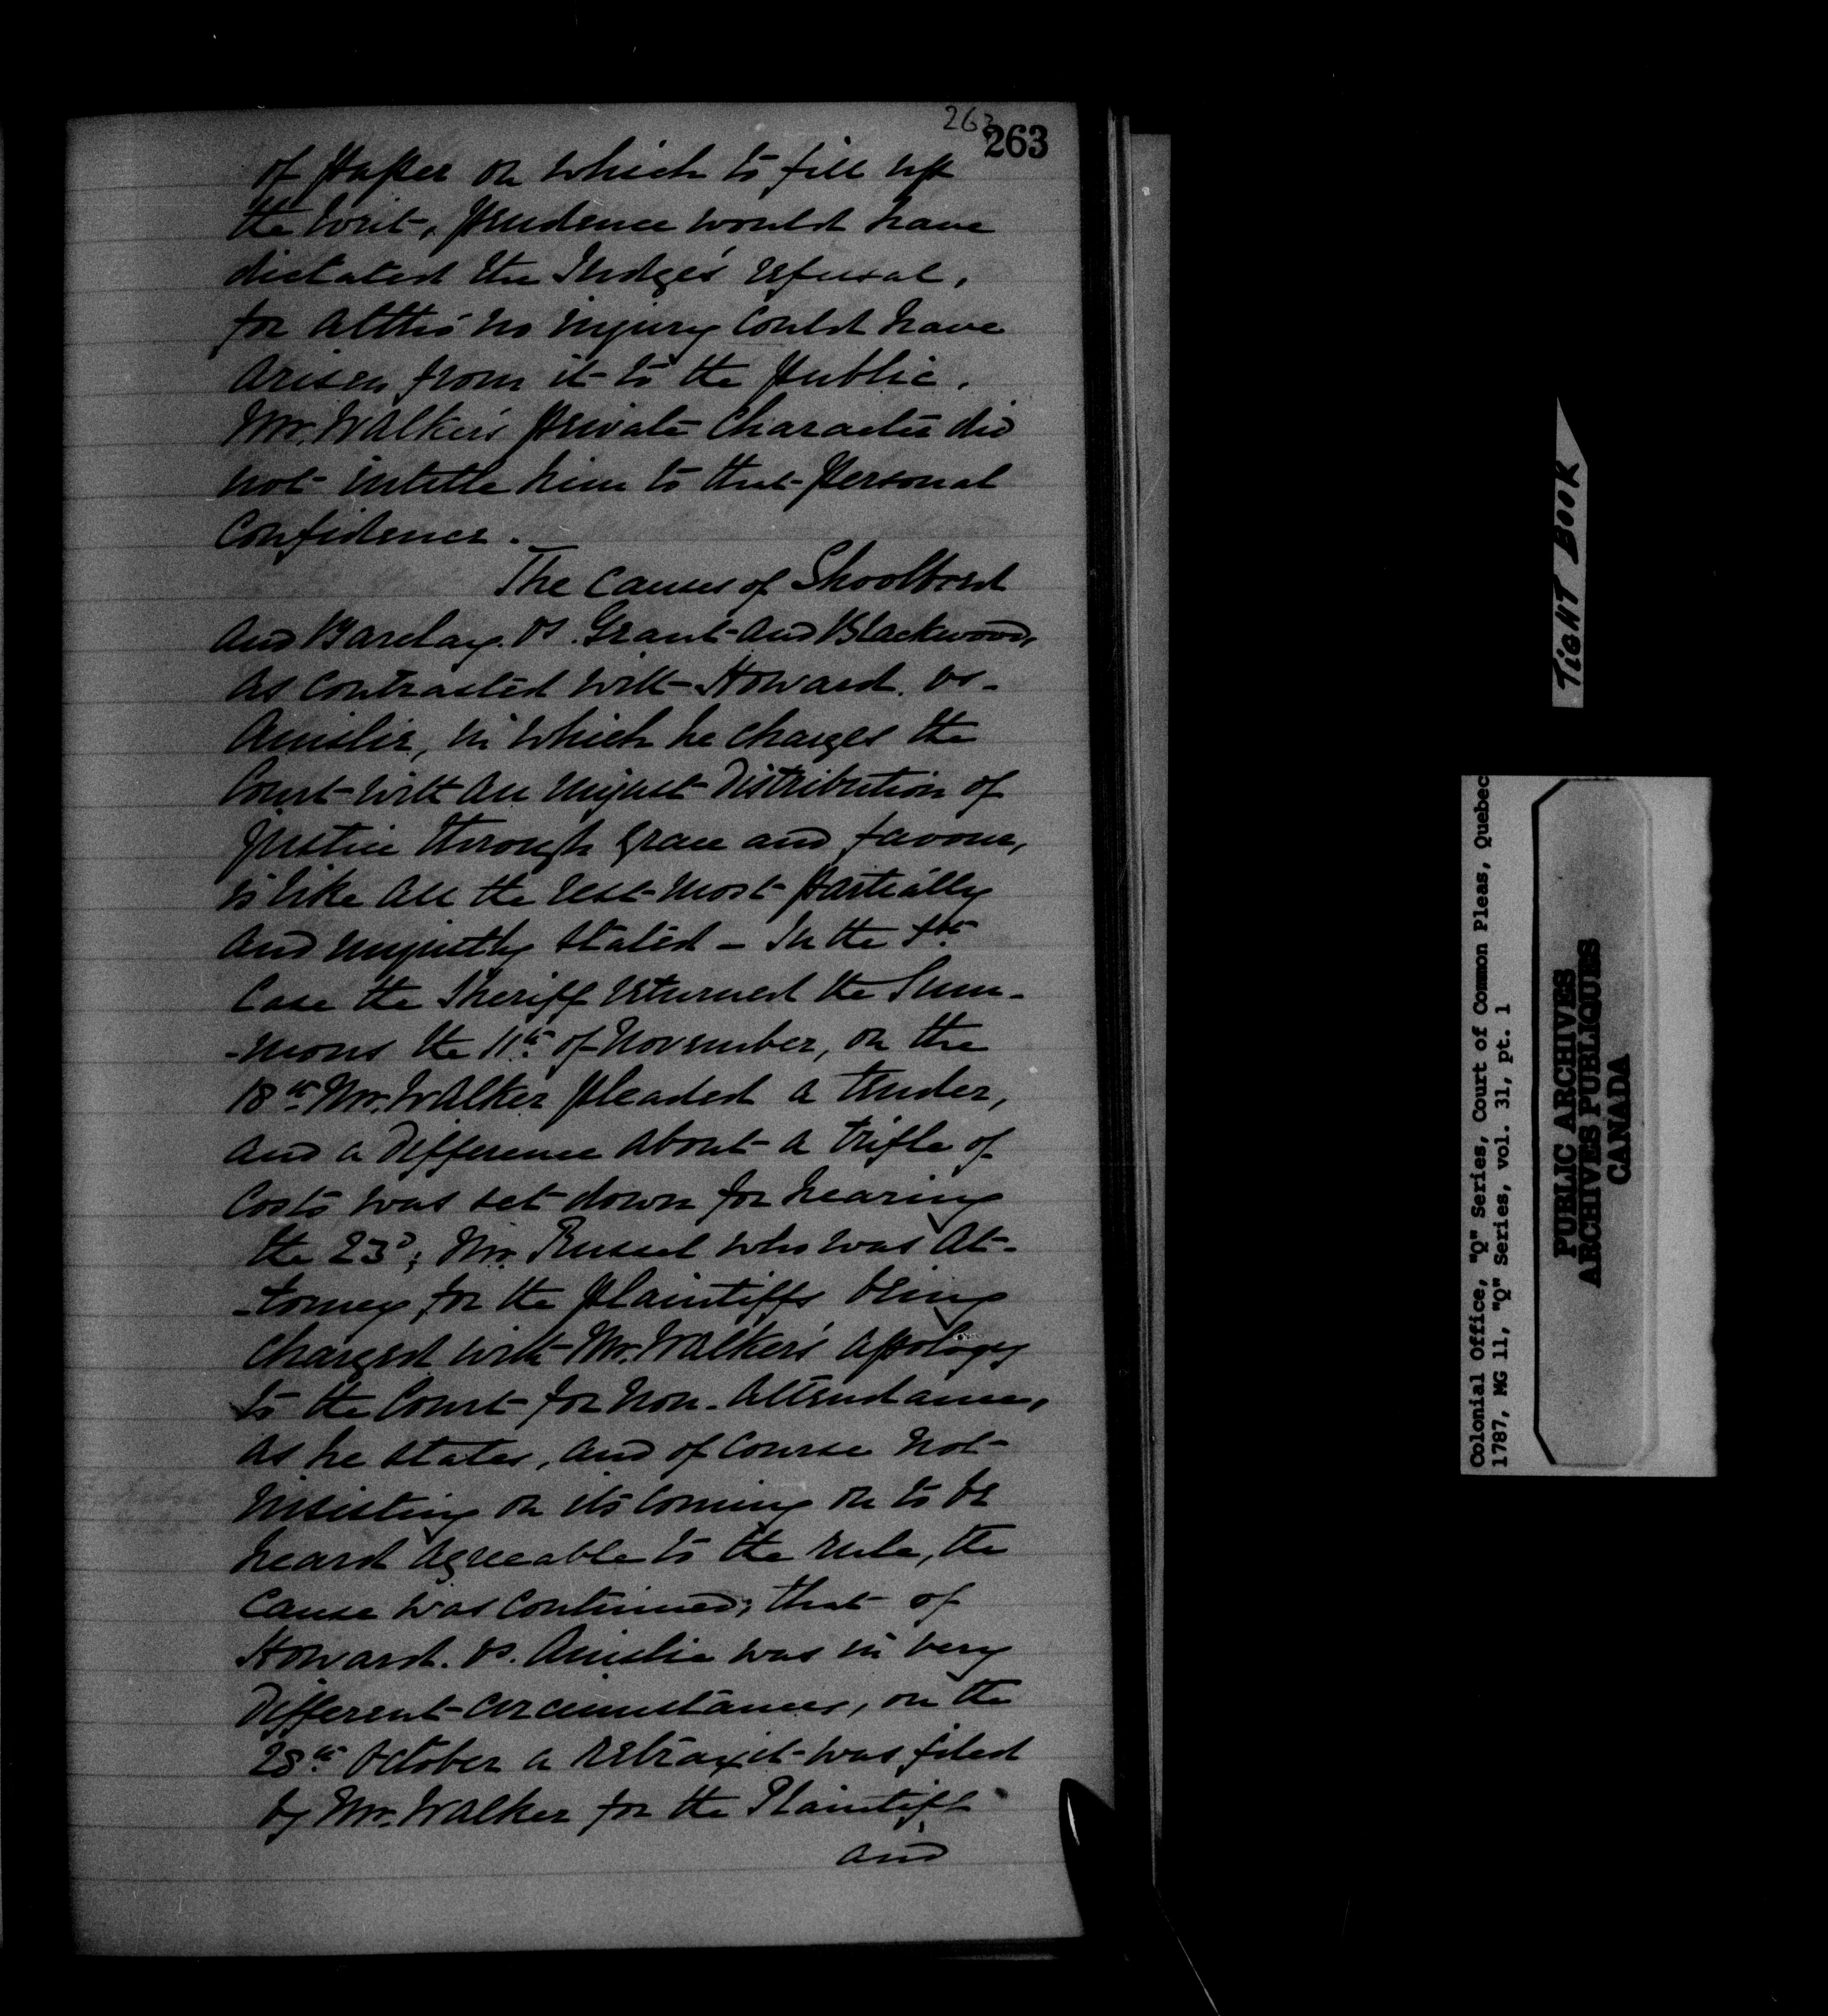 263
263
of paper on which to fill up
the Writ, prudence would have
dictated the Judge's refusal,
for altho' no injury could have
arisen from it to the public,
Mr. Walker's private Character did
not intitle him to that personal
Confidence.
The Causes of Shoolbred
and Barclay. vs. Grant and Blackwood,
as contrasted with Howard. vs.
Ainslie, in which he charges the
Court with an unjust distribution of
justice through grace and favour,
is like all the rest most partially
and unjustly stated - In the 1st
Case the Sheriff returned the Sum-
-mons the 11th of November, on the
18th Mr. Walker pleaded a tender,
and a difference about a trifle of
Costs was set down for hearing
the 23d; Mr. Russel who was At-
-torney for the plaintiffs being
charged with Mr. Walker's apology
to the Court for non-attendance,
as he states, and of Course not
insisting on its coming on to be
heard agreeable to the rule, the
Cause was continued; that of
Howard. vs. Ainslie was in very
different circumstances, on the
28th October a retraxit was filed
by Mr. Walker for the Plaintiff
and
TIGHT BOOK
Colonial Office, "Q" Series, Court of Common Pleas, Quebec
1787, MG 11, "Q" Series, vol. 31, pt. 1
PUBLIC ARCHIVES
ARCHIVES PUBLIQUES
CANADA